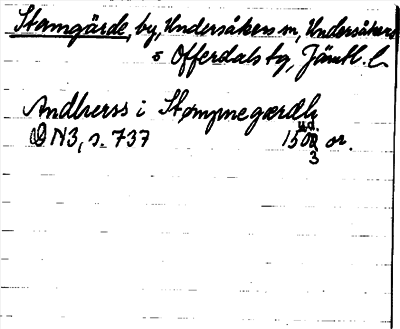 Stamgärde, by, Undersåkers sn, Undersåkers
o Offerdals tg, Jämtl. l.
Andherss i Stompnegærdh
DN3, s. 737 1503 or.